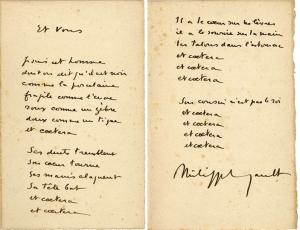 Et Vous
Puis cet homme
dont on dit qu'il est noir
comme la porcelaine
fragile comme l'encre
roux comme un zèbre
doux comme un tigre
et cœtera
Ses dents tremblent
Son cœur tourne
Ses mains claquent
Sa tête bat
et cœtera
et cœtera
Il a le cœur sur les lèvres
il a le sourire sur la main
les talons dans l'estomac
et cœtera
et cœtera
et cœtera
Son cousin n'est pas le roi
et cœtera
et cœtera
et cœtera
et cœtera
Philippe Soupault